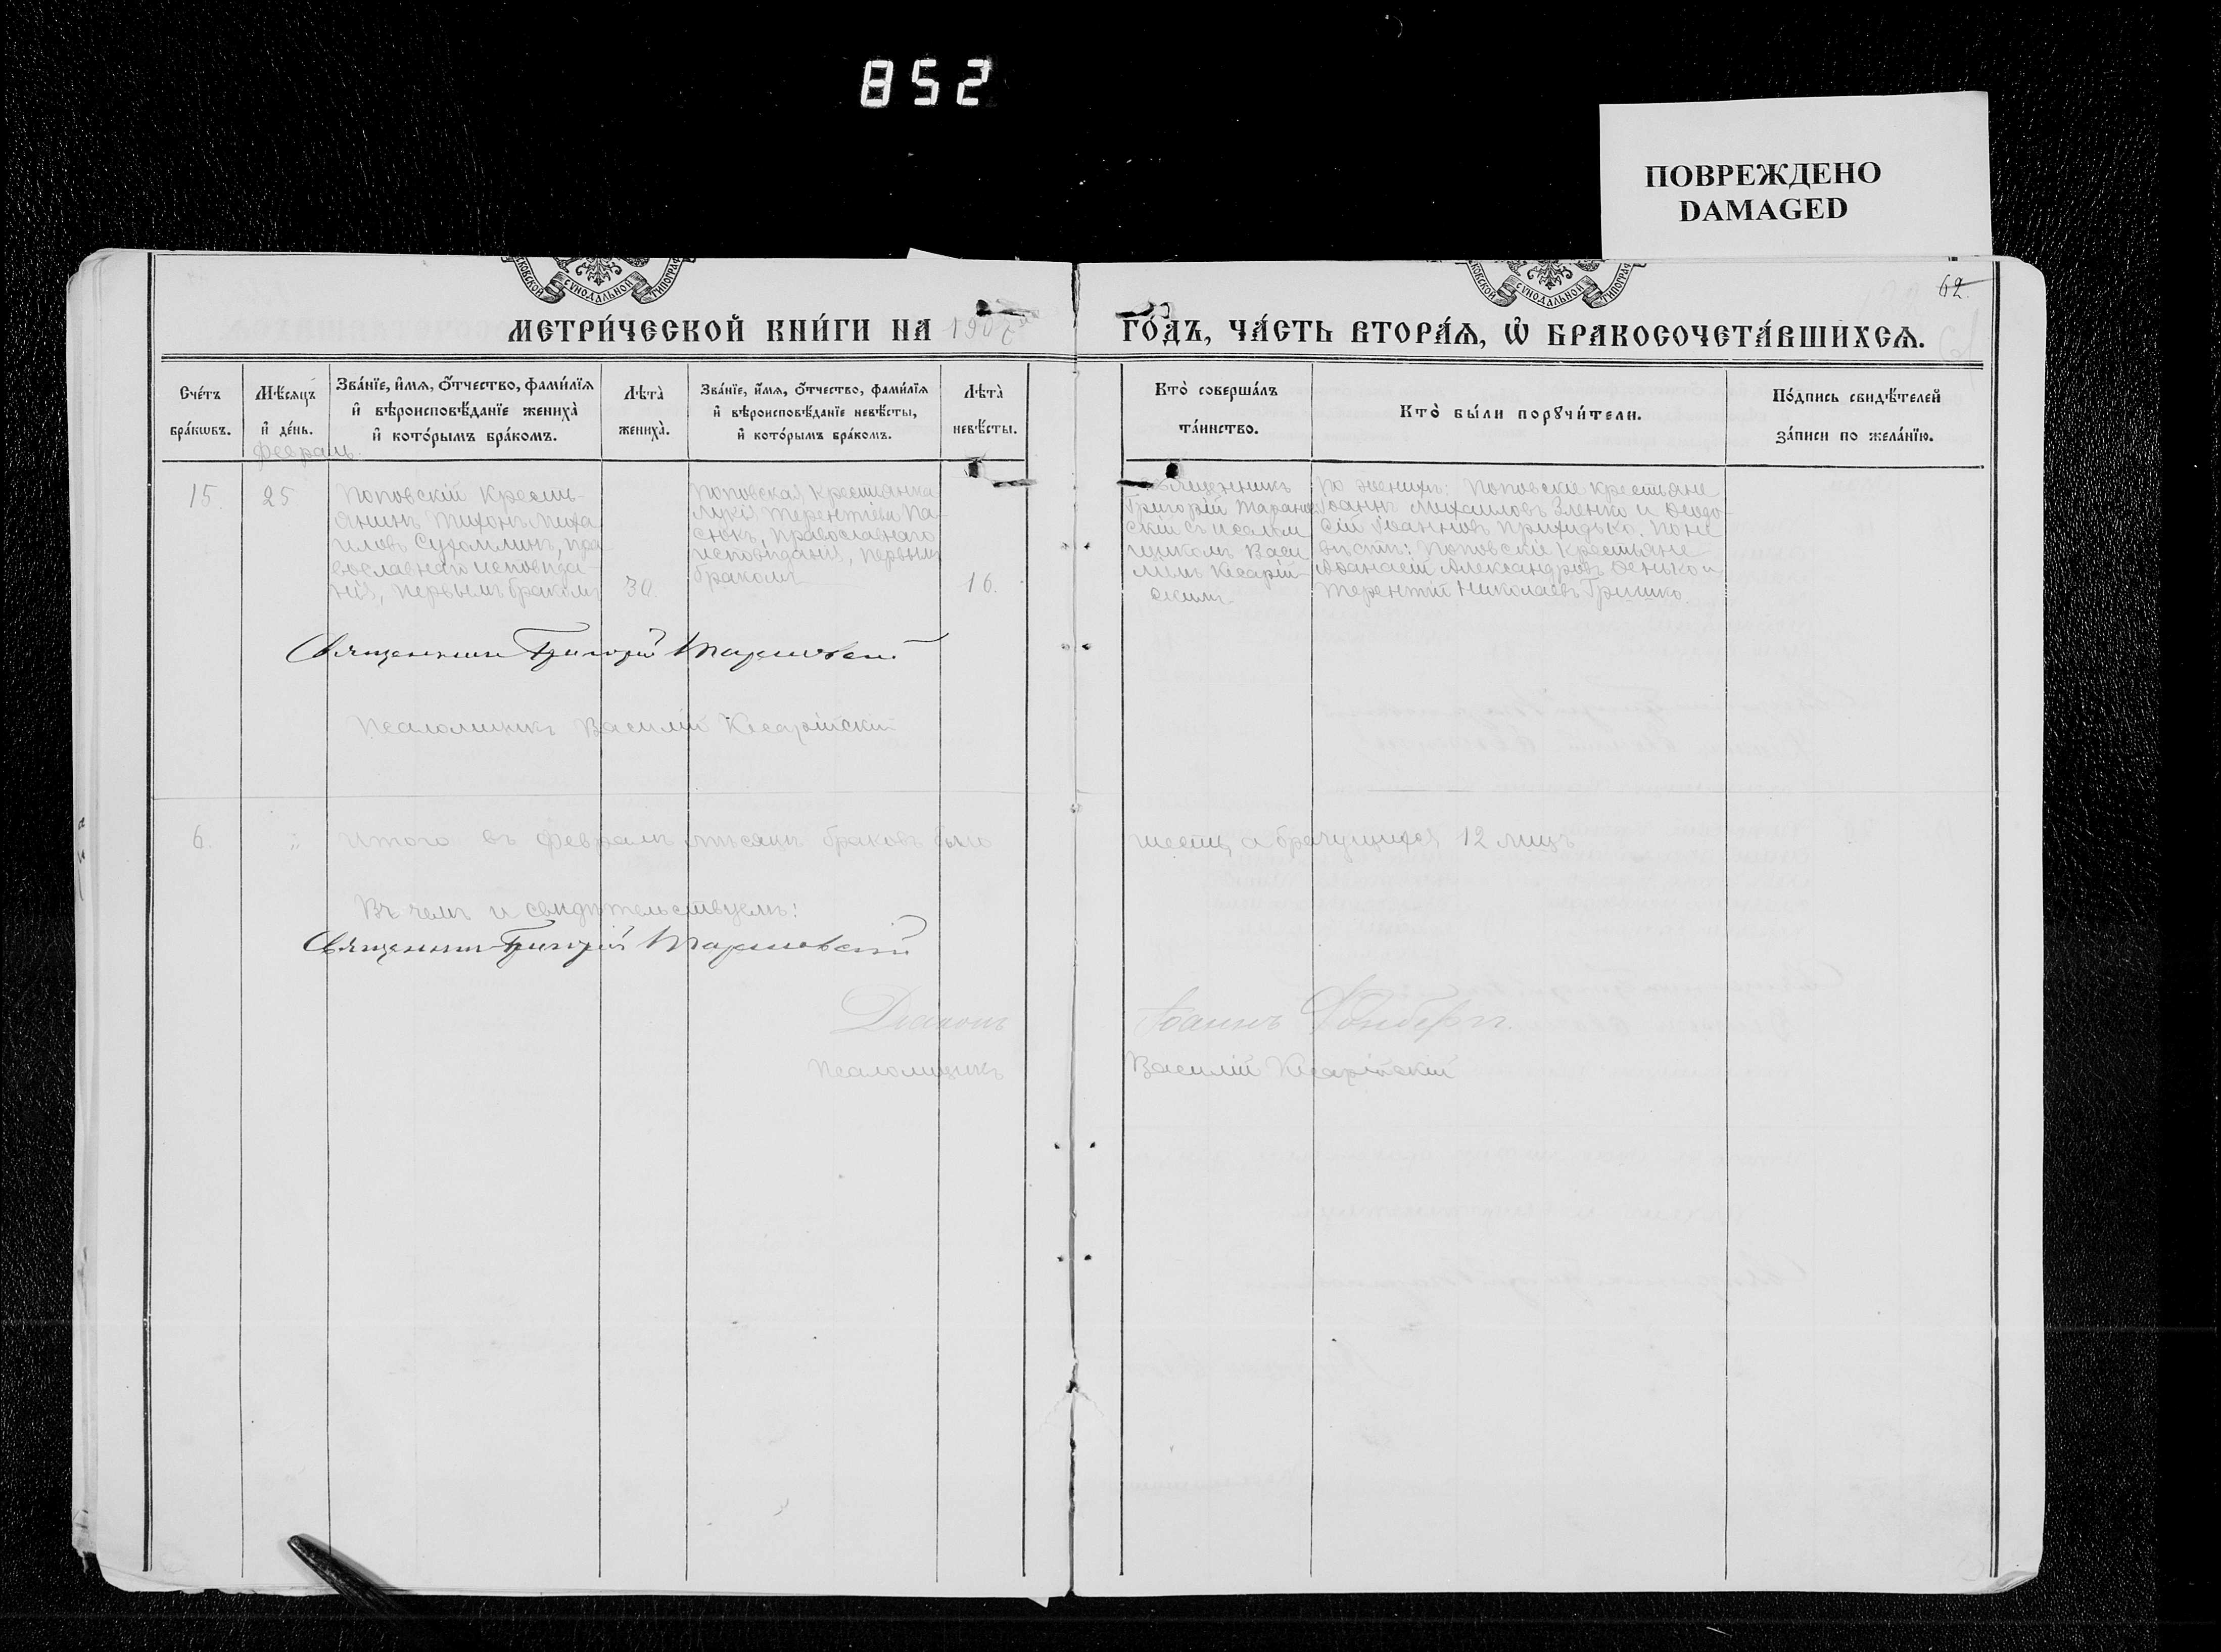 852
ПОВРЕЖДЕНО
DAMAGED
62
МЕТРИ́ЧЕСКОЙ КНИ́ГИ НА 1907 ГО́ДЪ, ЧА́СТЬ ВТОРА́Я, Ѡ҆ БРАКОСОЧЕТА́ВШИХСЯ.
Сче́тъ
бра́кѡвъ.
Мѣ́сяцъ
и҆ де́нь.
Зва́нїе, и҆́мя, ѻ҆́тчество, фами́лїя
и҆ вѣроисповѣ́данїе жениха̀
и҆ кото́рымъ бра́комъ.
Лѣта̀
жениха̀.
Зва́нїе, и҆́мя, ѻ҆́тчество, фами́лїя
и҆ вѣроисповѣ́данїе невѣ́сты,
и҆ кото́рымъ бра́комъ.
Лѣта̀
невѣ́сты.
Кто̀ соверша́лъ
та́инство.
Кто̀ бы́ли порꙋчи́тели.
По́дпись свидѣ́телей
за́писи по жела́нїю.
Февраль
15.
25.
Поповскій кресть-
янинъ Тихонъ Миха-
иловъ Сухомлинъ, пра-
вославнаго исповѣда-
нія, первымъ бракомъ
30.
Поповская крестьянка
Лукія Терентіева Па-
сюкъ, православнаго
исповѣданія, первымъ
бракомъ
16.
Священникъ
Григорій Таранов
скій съ псалом
щикомъ Васи
ліемъ Кесарій
скимъ.
По женихѣ: Поповскіе крестьяне
Іоаннъ Михаиловъ Зленко и Ѳеодо-
сій Іоанновъ Приходько. По не
вѣстѣ: Поповскіе крестьяне
Аѳанасій Александровъ и
Терентій Николаевъ Гришко.
Священникъ Григорій Тарановскій
Псаломщикъ Василій Кесарійскій
6.
"
Итого въ февралѣ мѣсяцѣ браковъ было шесть, а брачущихся 12 лицъ
Въ чемъ и свидѣтельствуемъ:
Священникъ Григорій Тарановскій
Діаконъ Іоаннъ
Псаломщикъ Василій Кесарійскій